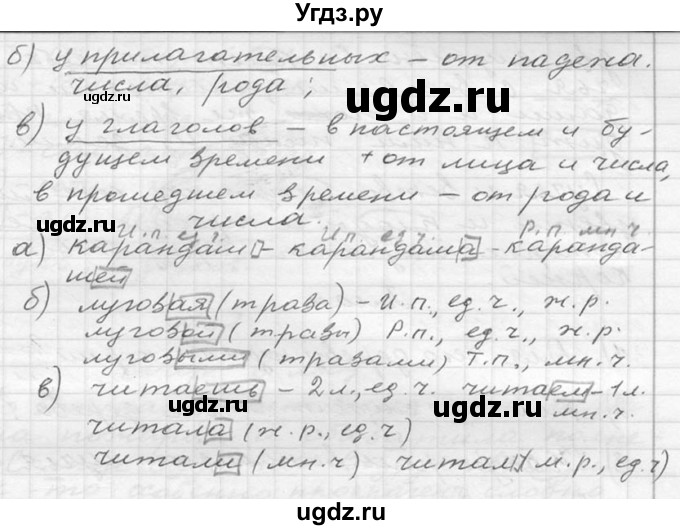 Угдз.ру
б) у прилагательных – от падежа.
числа, рода;
в) у глаголов – в настоящем и бу-
дущем времени + от лица и числа,
в прошедшем времени – от рода и
числа.
И.п. ед.ч. И.п. ед.ч. Р.п. мн.ч.
а) карандаш – карандаша – каранда-
шей
б) луговая (трава) – И.п., ед.ч., ж.р.
луговой (травы) Р.п., ед.ч., ж.р.
луговыми (травами) Т.п., мн.ч.
в) читаешь – 2л., ед.ч. читаем – 1л.
мн.ч.
читала (ж.р., ед.ч)
читали (мн.ч) читал (м.р., ед.ч)
ugdz.ru
ugdz.ru
ugdz.ru
ugdz.ru
ugdz.ru
ugdz.ru
ugdz.ru
ugdz.ru
ugdz.ru